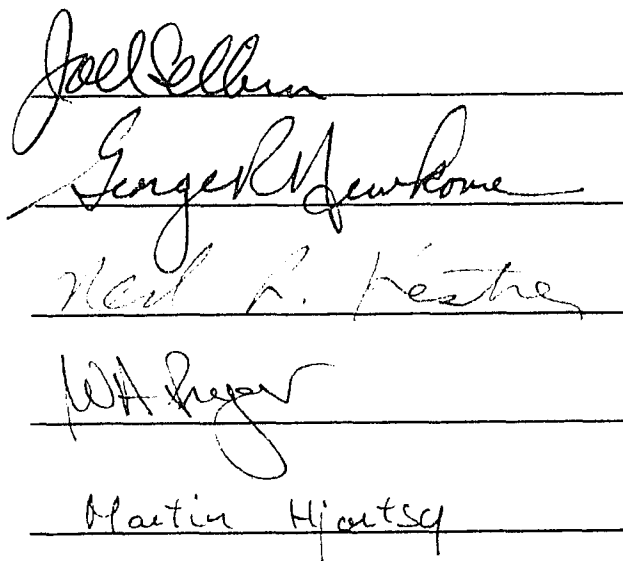 Joel Selbin
George R Newkome
Neil R. Kestner
WA Pryor
Martin Hjortsø